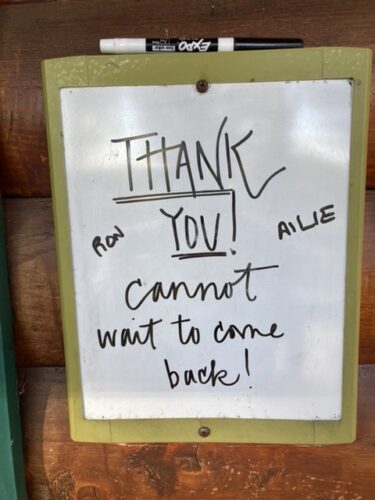 EXPO
THANK
YOU!
RON
AILIE
cannot
wait to come
back!